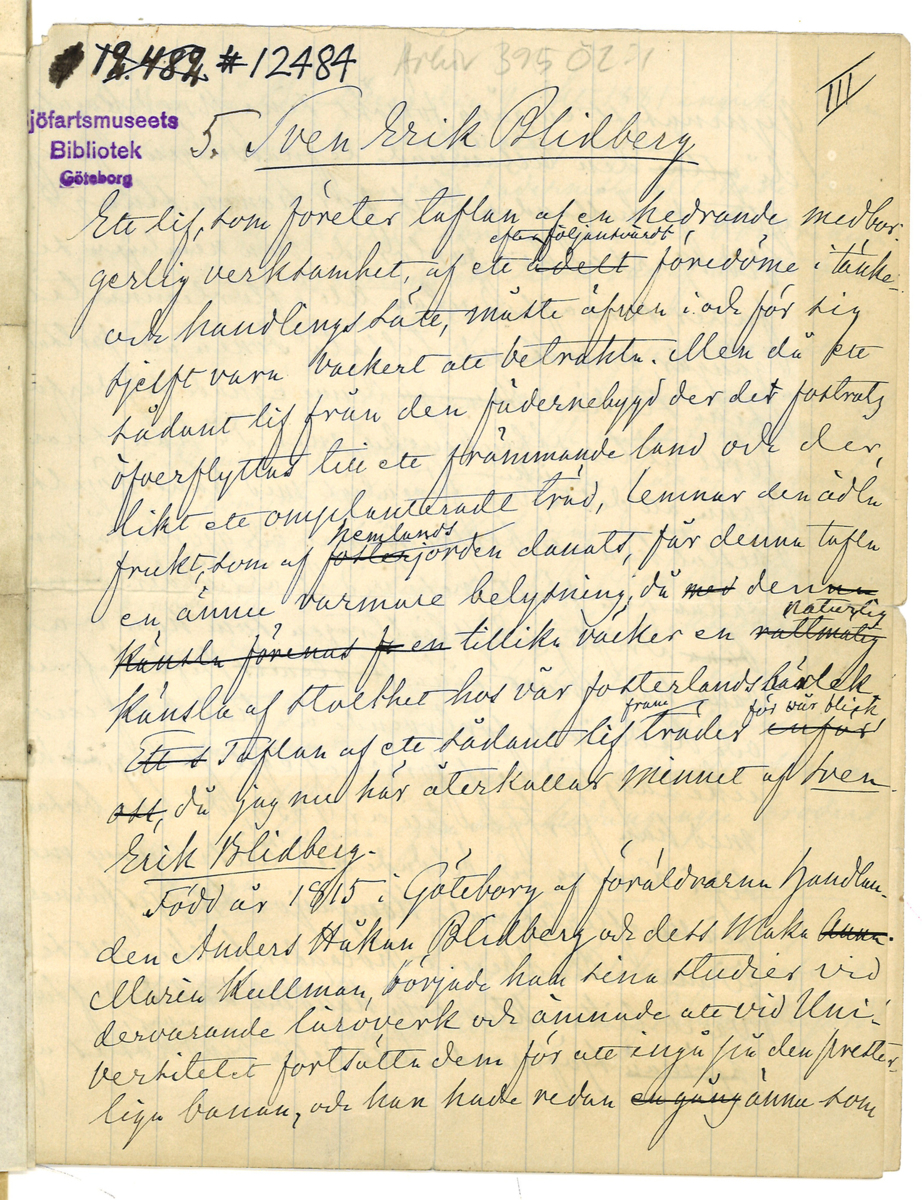 # 12.482. # 12484
Arkiv 395 ÖZ:1
III
Sjöfartsmuseets
Bibliotek
Göteborg
5. Sven Erik Blidberg
Ett lif, som företer taflan af en hedrande medbor-
efterföljansvärdt
gerlig verksamhet, af ett ädelt föredöme i tänke-
och handlingssätt, måste äfven i och för sig
sjelft vara vackert att betrakta. Men då ett
sådant lif från den fädernebygd der det fostrats
öfverflyttas till ett främmande land och der,
likt ett omplanteradt träd, lemnar den ädla
hemlands
frukt, som af fosterjorden danats, får denna tafla
en ännu varmare belysning, då med denna
naturlig
känsla förenas en tillika väcker en rättmätig
känsla af stolthet hos vår fosterlandskärlek.
fram för vår blick
Ett s Taflan af ett sådant lif träder inför
oss, då jag nu här återkallar minnet af Sven
Erik Blidberg.
Född år 1815 i Göteborg af föräldrarna Handlan-
den Anders Håkan Blidberg och dess Maka Anna
Maria Kullman, började han sina studier vid
dervarande läroverk och ämnade att vid Uni-
versitetet fortsätta dem för att ingå på den prester-
liga banan, och han hade redan en gång ännu som